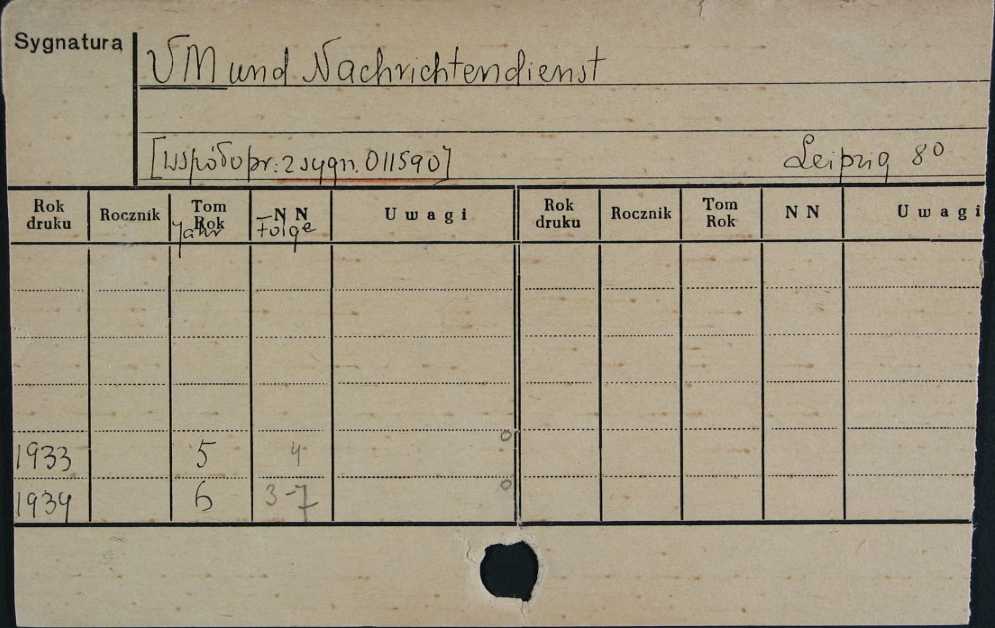 Sygnatura
VM und Nachrichtendienst
[współopr: z sygn. 011590] Leipzig 8⁰
Rok druku Rocznik Tom Rok Jahr N N Folge Uwagi Rok druku Rocznik Tom Rok N N Uwagi
1933 5 4 0
1934 6 3-7 0